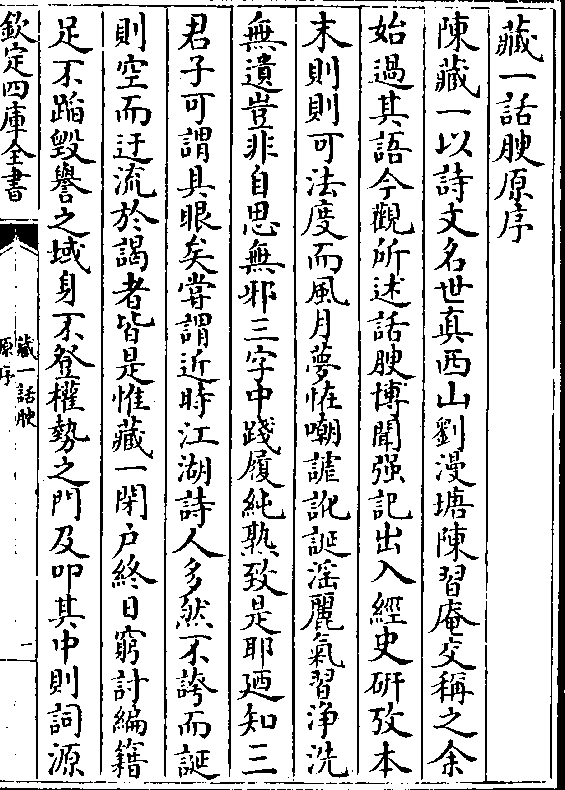 藏一話腴原序
陳藏一以詩文名世真西山劉漫塘陳習庵交稱之余
始過其語今觀所述話腴博聞强記出入經史研攷本
末則則可法度而風月夢恠嘲謔訛誕淫麗氣習净洗
無遺豈非自思無邪三字中踐履純熟致是耶廼知三
君子可謂具眼矣嘗謂近時江湖詩人多然不誇而誕
則空而迂流於謁者皆是惟藏一閉户終日窮討編籍
足不蹈毀譽之域身不登權勢之門及叩其中則詞源
欽定四庫全書
藏一話腴
原序
一